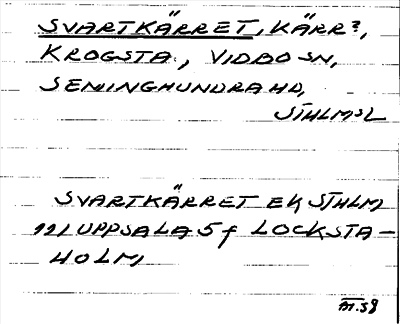 SVARTKÄRRET, KÄRR?,
KROGSTA, VIDBO SN,
SEMINGHUNDRA HD,
STHLMSL
SVARTKÄRRET EK STHLM
111 UPPSALA 5 f LOCKSTA-
HOLM